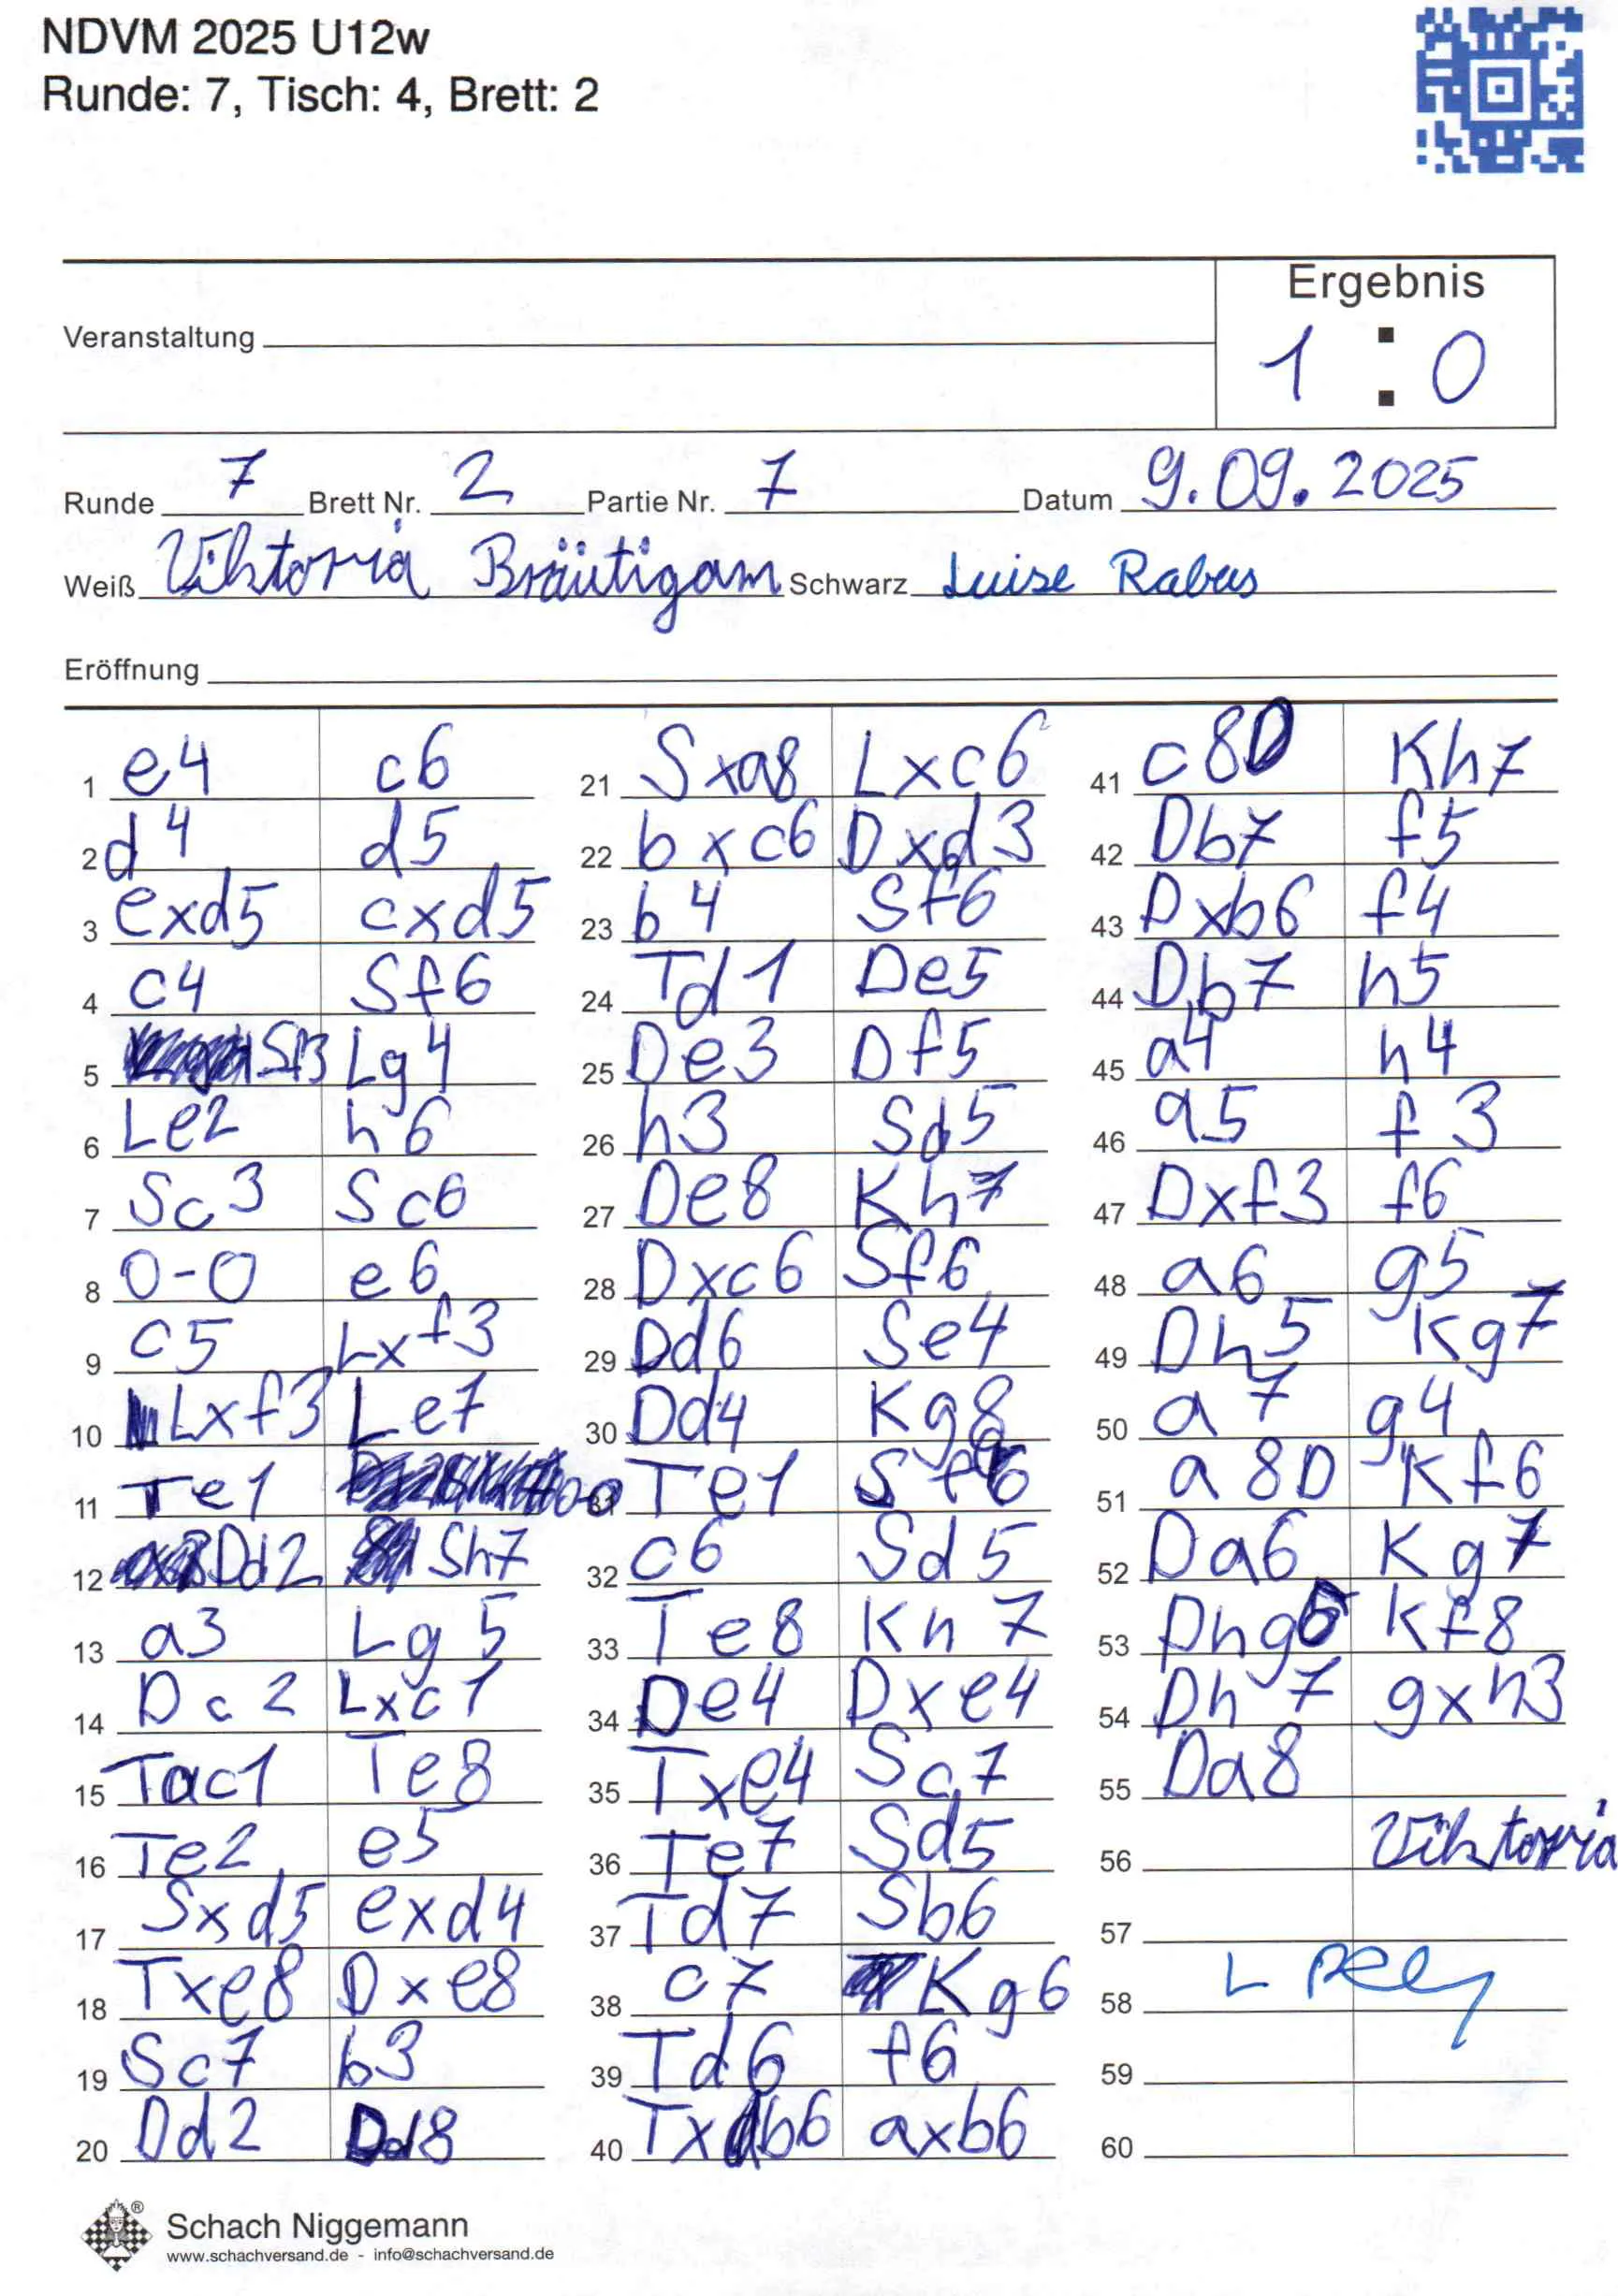 NDVM 2025 U12w
Runde: 7, Tisch: 4, Brett: 2
Ergebnis
Veranstaltung
1 : 0
Runde 7 Brett Nr. 2 Partie Nr. 7 Datum 9.09.2025
Weiß Viktoria Bräutigam Schwarz Luise Rabus
Eröffnung
1 e4 c6
2 d4 d5
3 exd5 cxd5
4 c4 Sf6
5 Sf3 Lg4
6 Le2 h6
7 Sc3 Sc6
8 0-0 e6
9 c5 Lxf3
10 Lxf3 Le7
11 Te1 0-0
12 Dd2 Sh7
13 a3 Lg5
14 Dc2 Lxc1
15 Tac1 Te8
16 Te2 e5
17 Sxd5 exd4
18 Txe8 Dxe8
19 Sc7 b3
20 Dd2 Dd8
21 Sxa8 Lxc6
22 bxc6 Dxd3
23 b4 Sf6
24 Td1 De5
25 De3 Df5
26 h3 Sd5
27 De8 Kh7
28 Dxc6 Sf6
29 Dd6 Se4
30 Dd4 Kg8
31 Te1 Sf6
32 c6 Sd5
33 Te8 Kh7
34 De4 Dxe4
35 Txe4 Sc7
36 Te7 Sd5
37 Td7 Sb6
38 c7 Kg6
39 Td6 f6
40 Txb6 axb6
41 c8D Kh7
42 Db7 f5
43 Dxb6 f4
44 Db7 h5
45 a4 h4
46 a5 f3
47 Dxf3 f6
48 a6 g5
49 Dh5 Kg7
50 a7 g4
51 a8D Kf6
52 Da6 Kg7
53 Dhg6 Kf8
54 Dh7 gxh3
55 Da8
56 Viktoria
57
58
59
60
Schach Niggemann
www.schachversand.de - info@schachversand.de